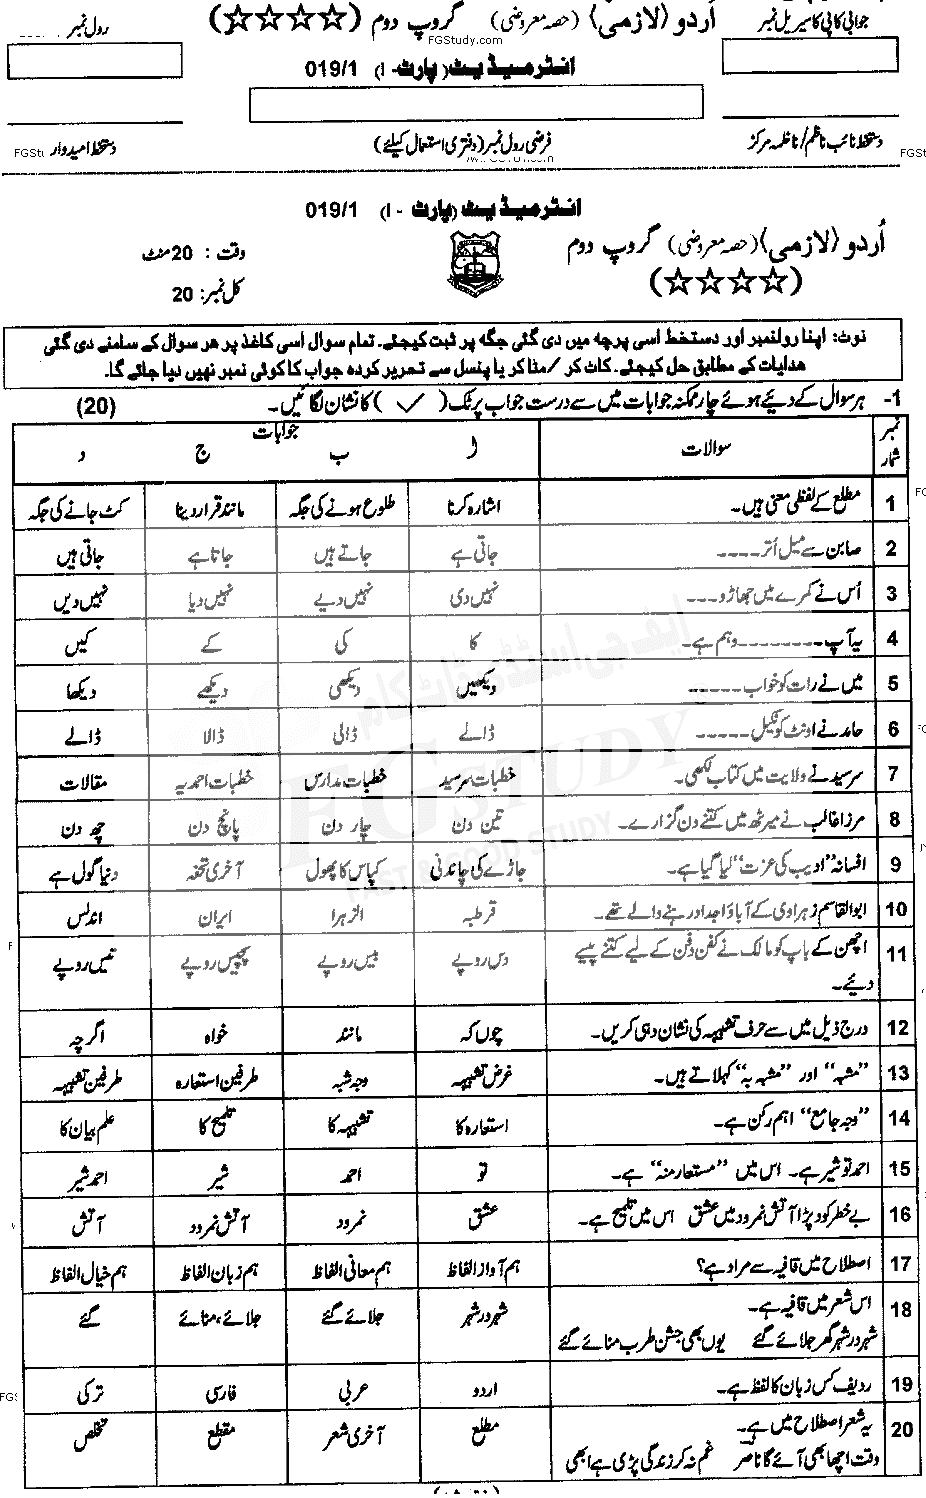 جوابی کاپی کا سیریل نمبر
اُردو (لازمی) (حصہ معروضی) گروپ دوم (☆☆☆☆)
رول نمبر
FGStudy.com
انٹرمیڈیٹ (پارٹ - I) 019/1
دستخط نائب ناظم/ناظمہ مرکز
فرضی رول نمبر (دفتری استعمال کیلئے)
دستخط امیدوار
انٹرمیڈیٹ (پارٹ - I) 019/1
اُردو (لازمی) (حصہ معروضی) گروپ دوم
(☆☆☆☆)
وقت : 20 منٹ
کل نمبر : 20
نوٹ: اپنا رولنمبر اور دستخط اسی پرچہ میں دی گئی جگہ پر ثبت کیجئے۔ تمام سوال اسی کاغذ پر ہر سوال کے سامنے دی گئی
ھدایات کے مطابق حل کیجئے۔ کاٹ کر / مٹا کر یا پنسل سے تحریر کردہ جواب کا کوئی نمبر نہیں دیا جائے گا۔
1- ہر سوال کے دیئے ہوئے چار ممکنہ جوابات میں سے درست جواب پر ٹک (✓) کا نشان لگائیں۔ (20)
نمبر شمار سوالات جوابات
ا ب ج د
1 مطلع کے لفظی معنی ہیں۔ اشارہ کرنا طلوع ہونے کی جگہ مانند قرار دینا کٹ جانے کی جگہ
2 صابن سے میل اُتر ---- جاتی ہے جاتے ہیں جاتا ہے جاتی ہیں
3 اُس نے کمرے میں جھاڑو --- نہیں دی نہیں دیے نہیں دیا نہیں دیں
4 یہ آپ -------- وہم ہے۔ کا کی کے کیں
5 میں نے رات کو خواب ------ دیکھیں دیکھی دیکھے دیکھا
6 حامد نے اونٹ کو نکیل ----- ڈالے ڈالی ڈالا ڈالے
7 سرسید نے ولایت میں کتاب لکھی۔ خطبات سرسید خطبات مدارس خطبات احمدیہ مقالات
8 مرزا غالب نے میرٹھ میں کتنے دن گزارے۔ تین دن چار دن پانچ دن چھ دن
9 افسانہ "ادیب کی عزت" لیا گیا ہے۔ جاڑے کی چاندنی کپاس کا پھول آخری تحفہ دنیا گول ہے
10 ابوالقاسم زہراوی کے آباؤ اجداد رہنے والے تھے۔ قرطبہ الزہرا ایران اندلس
11 اچھن کے باپ کو مالک نے کفن دفن کے لیے کتنے پیسے
دیئے۔ دس روپے بیس روپے پچیس روپے تیس روپے
12 درج ذیل میں سے حرف تشبیہہ کی نشان دہی کریں۔ چوں کہ مانند خواہ اگرچہ
13 "مشبہ" اور "مشبہ بہ" کہلاتے ہیں۔ غرض تشبیہہ وجہ شبہ طرفین استعارہ طرفین تشبیہہ
14 "وجہ جامع" اہم رکن ہے۔ استعارہ کا تشبیہہ کا تلمیح کا علم بیان کا
15 احمد تو شیر ہے۔ اس میں "مستعار منہ" ہے۔ تو احمد شیر احمد شیر
16 بے خطر کود پڑا آتش نمرود میں عشق اس میں تلمیح ہے۔ عشق نمرود آتش نمرود آتش
17 اصطلاح میں قافیہ سے مراد ہے؟ ہم آواز الفاظ ہم معانی الفاظ ہم زبان الفاظ ہم خیال الفاظ
18 اس شعر میں قافیہ ہے۔ شہر در شہر جلائے گئے جلائے، منائے گئے
شہر در شہر گھر جلائے گئے یوں بھی جشن طرب منائے گئے
19 ردیف کس زبان کا لفظ ہے۔ اردو عربی فارسی ترکی
20 یہ شعر اصطلاح میں ہے۔ مطلع آخری شعر مقطع تخلص
وقت اچھا بھی آئے گا ناصر غم نہ کر زندگی پڑی ہے ابھی